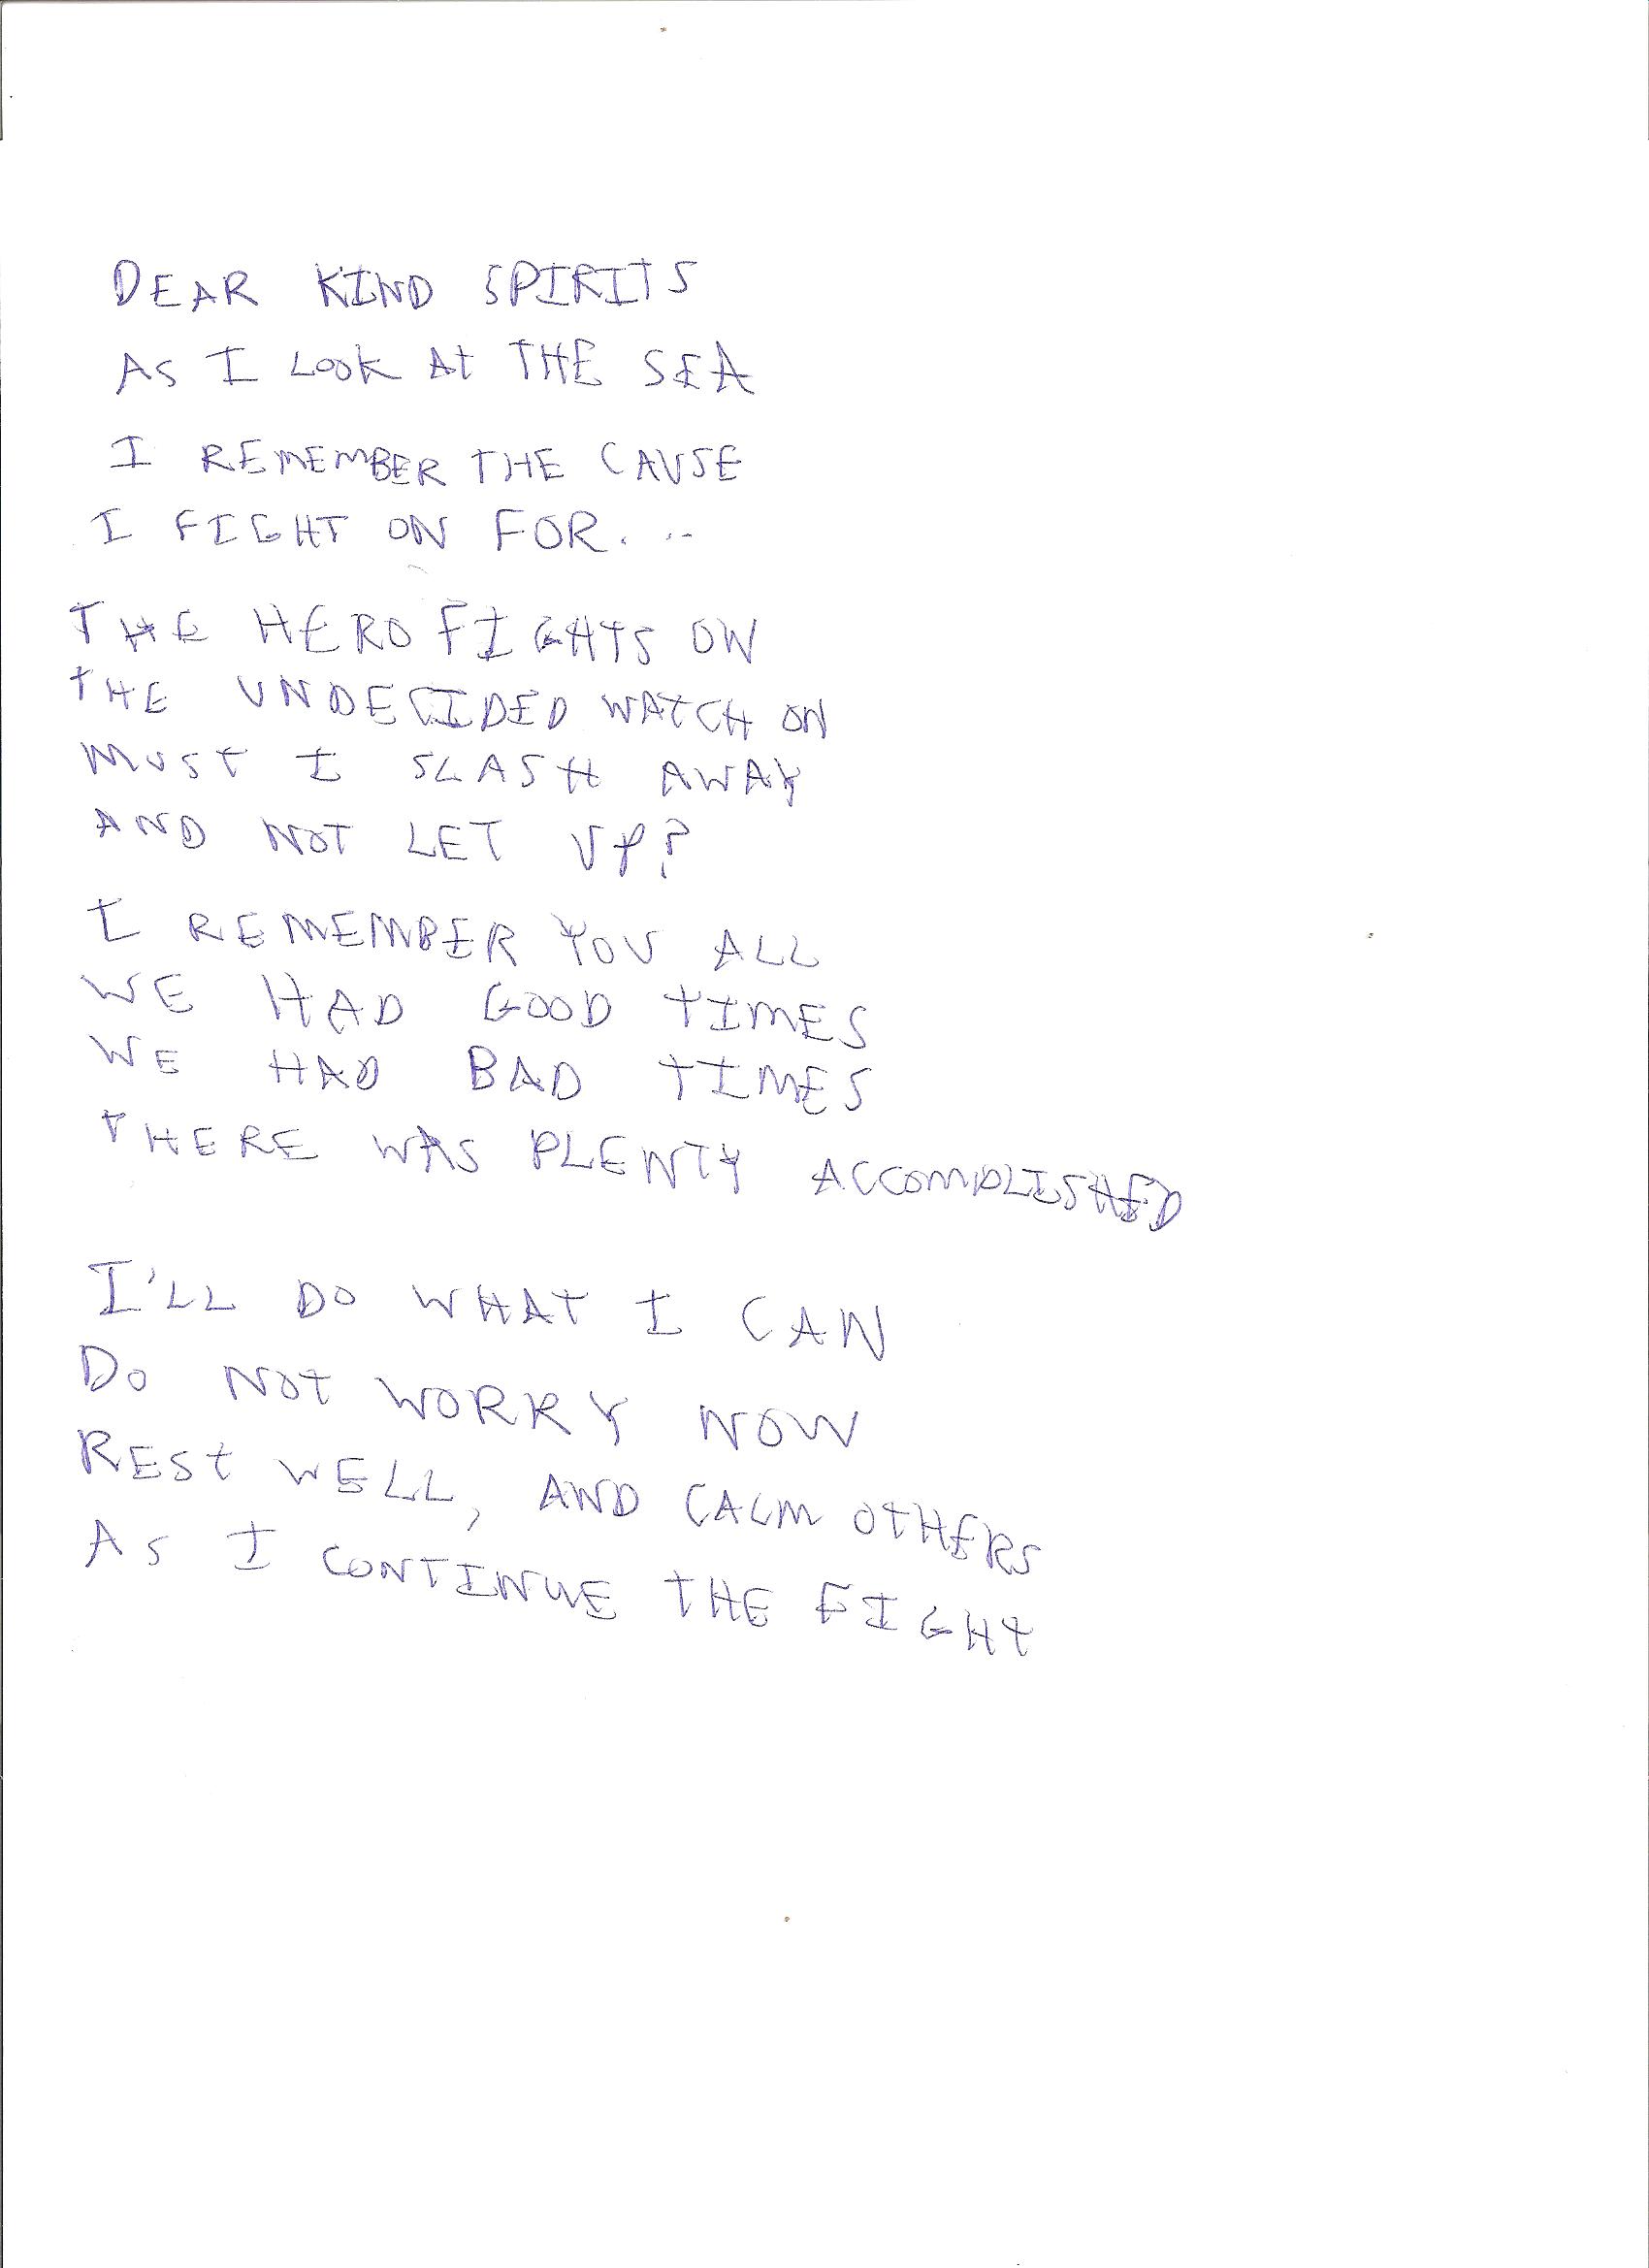 DEAR KIND SPIRITS
AS I LOOK AT THE SEA
I REMEMBER THE CAUSE
I FIGHT ON FOR...
THE HERO FIGHTS ON
THE UNDECIDED WATCH ON
MUST I SLASH AWAY
AND NOT LET UP?
I REMEMBER YOU ALL
WE HAD GOOD TIMES
WE HAD BAD TIMES
THERE WAS PLENTY ACCOMPLISHED
I'LL DO WHAT I CAN
DO NOT WORRY NOW
REST WELL, AND CALM OTHERS
AS I CONTINUE THE FIGHT